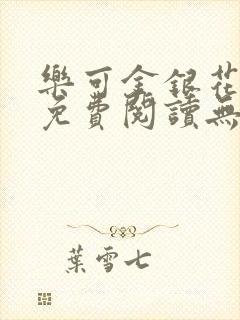 樂可金銀花
免費閱讀無
葉雪七